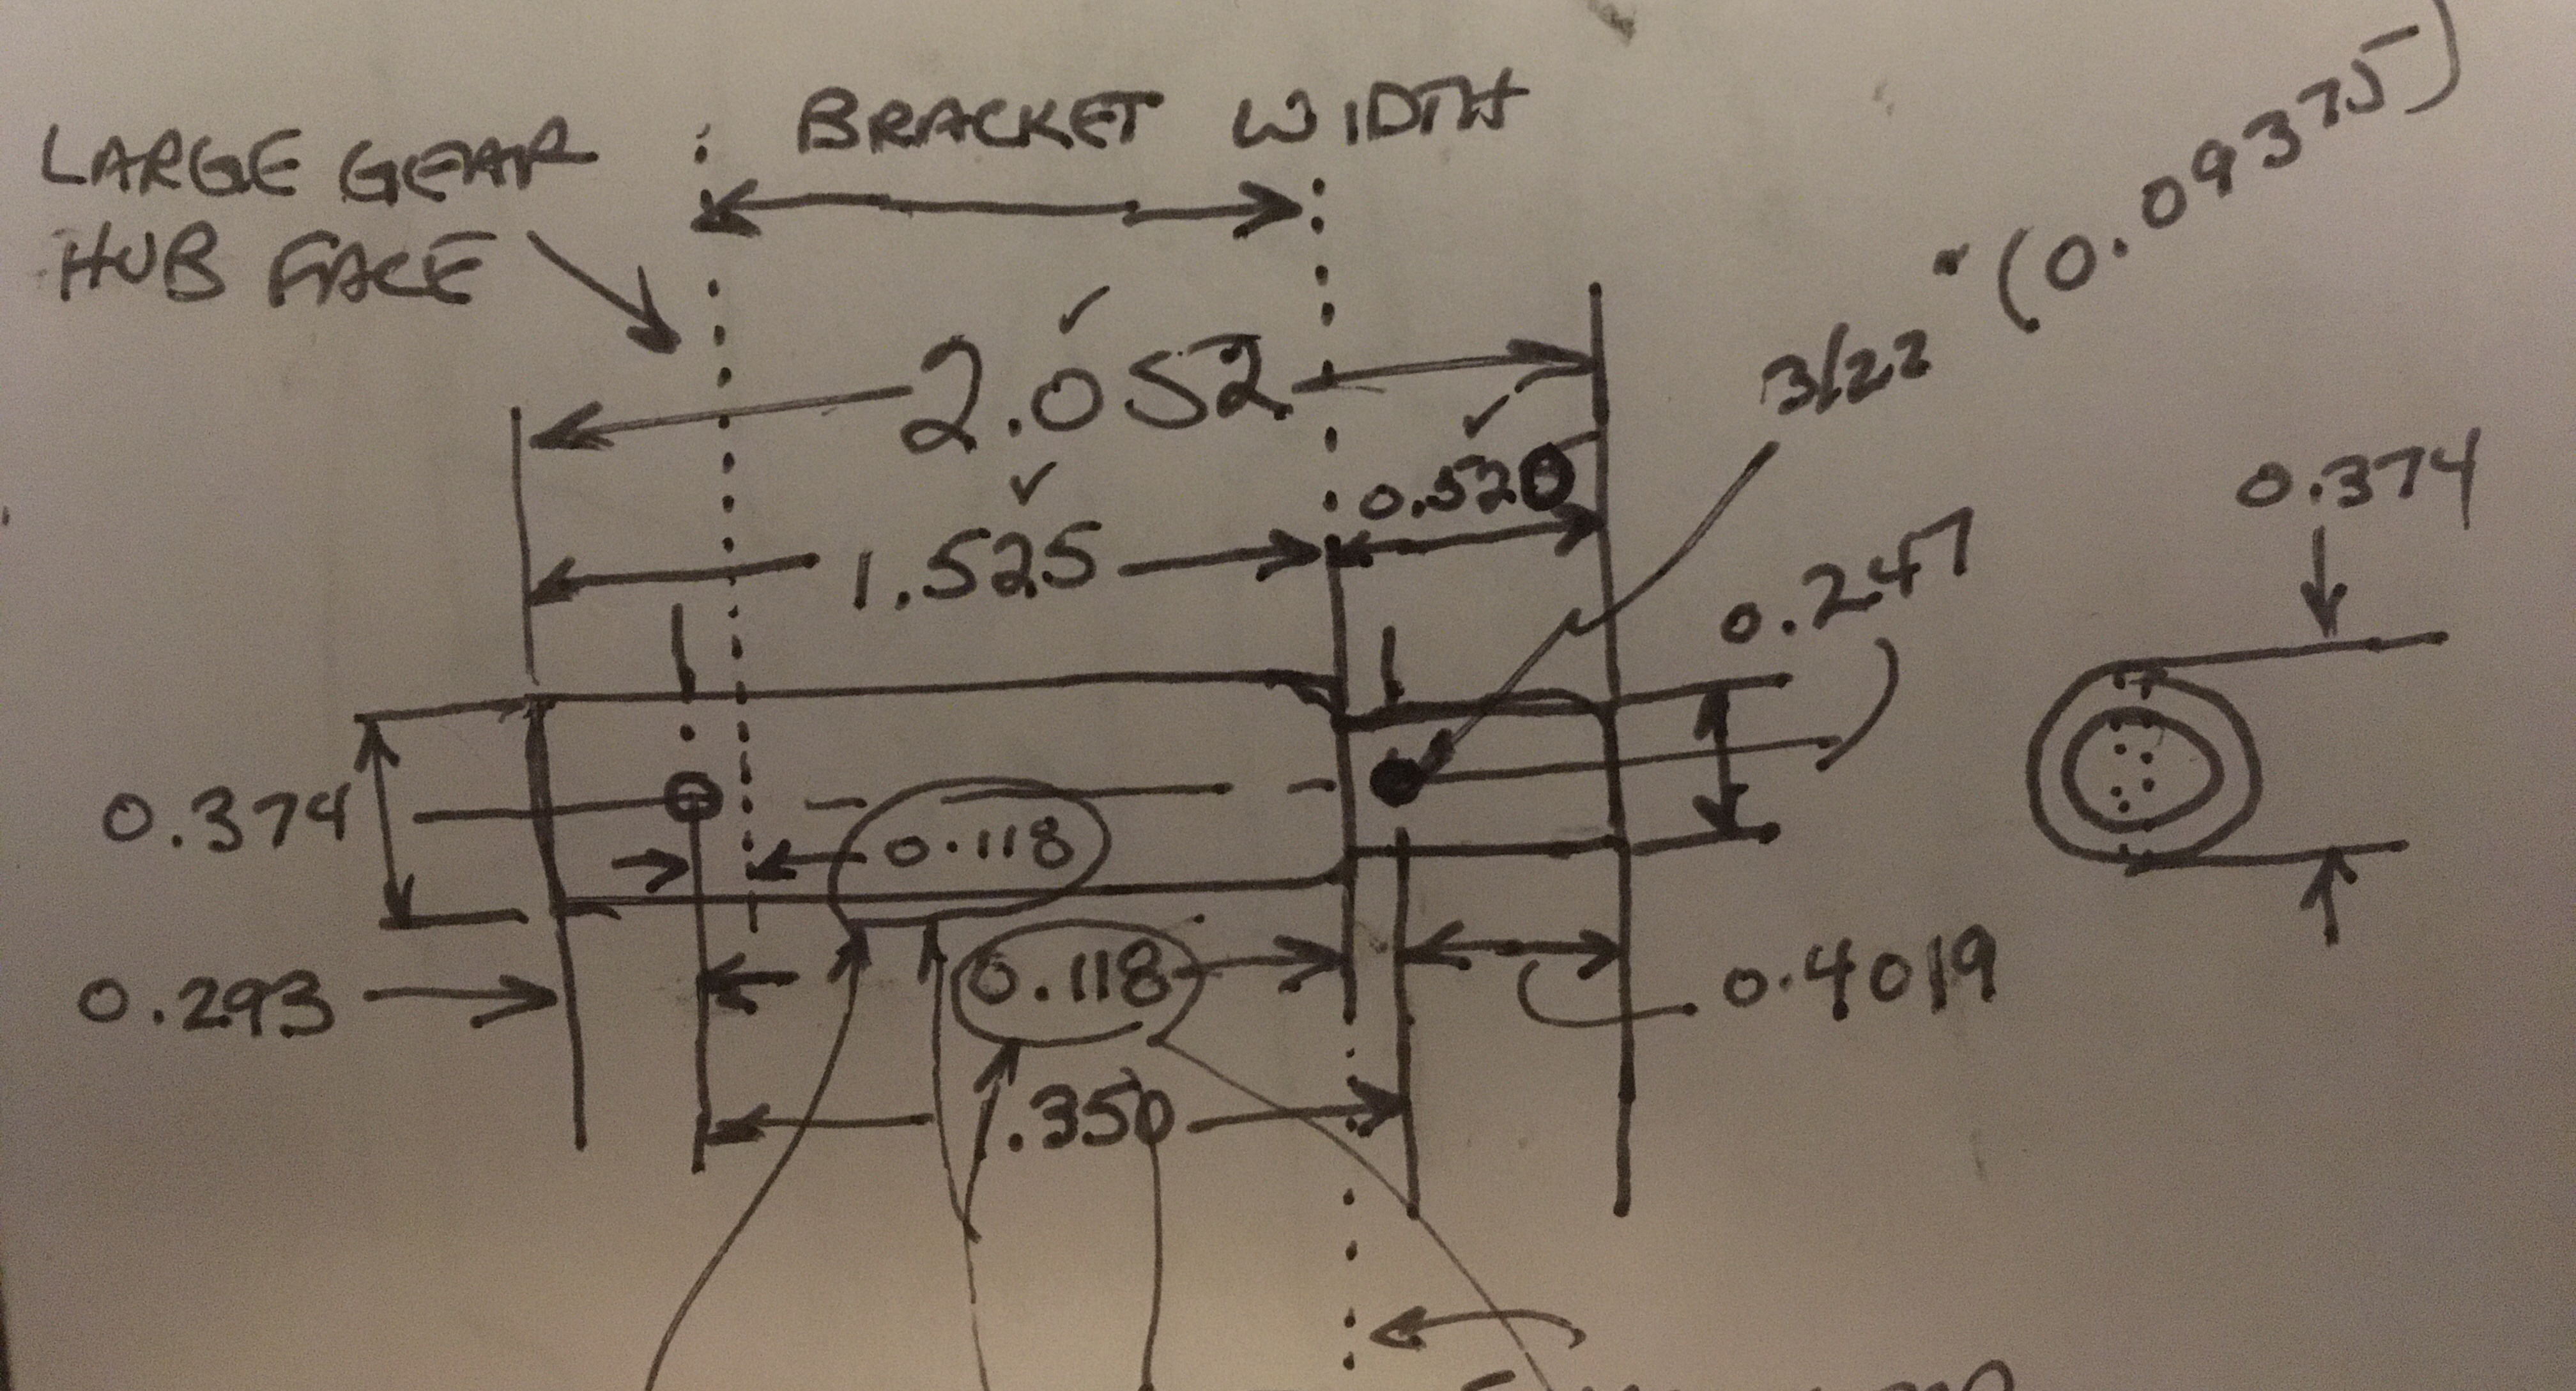 BRACKET WIDTH
LARGE GEAR
HUB FACE
(0.09375)
3/22"
2.052
0.520
1.525
0.374
0.247
0.374
0.118
0.118
0.293
0.4019
1.350